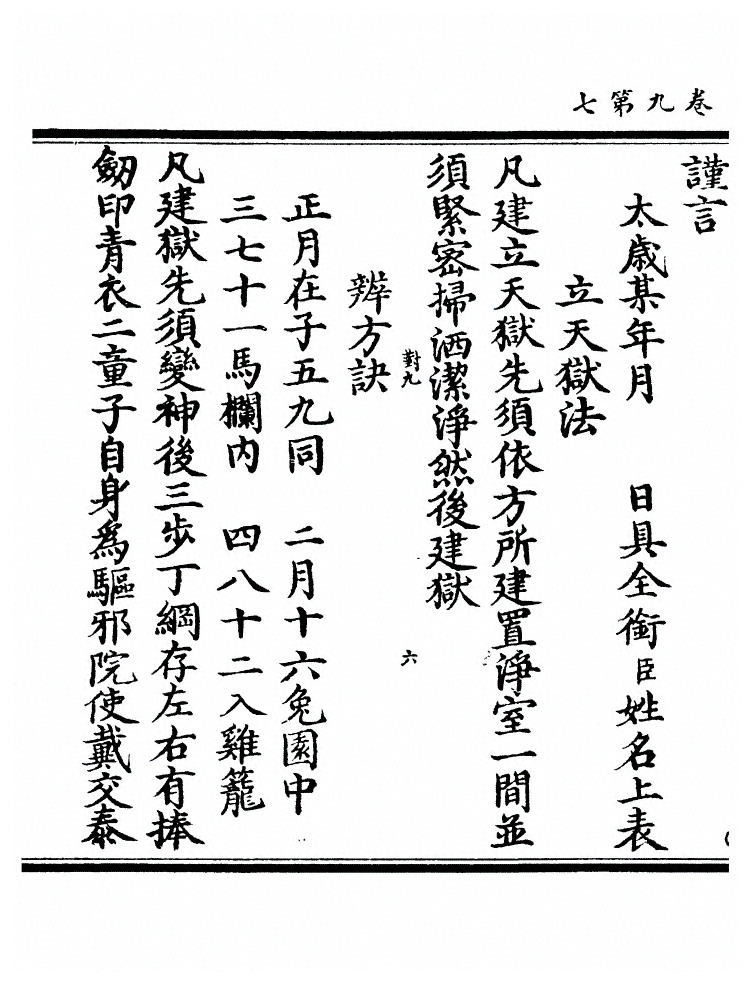 七第九卷
謹言
太歲某年月　日具全銜臣姓名上表
立天獄法
凡建立天獄先須依方所建置淨室一間並
須緊密掃洒潔淨然後建獄
對九　六
辨方訣
正月在子五九同　二月十六兔園中
三七十一馬欄內　四八十二入雞籠
凡建獄先須變神後三步丁綱存左右有捧
劒印青衣二童子自身為驅邪院使戴交泰